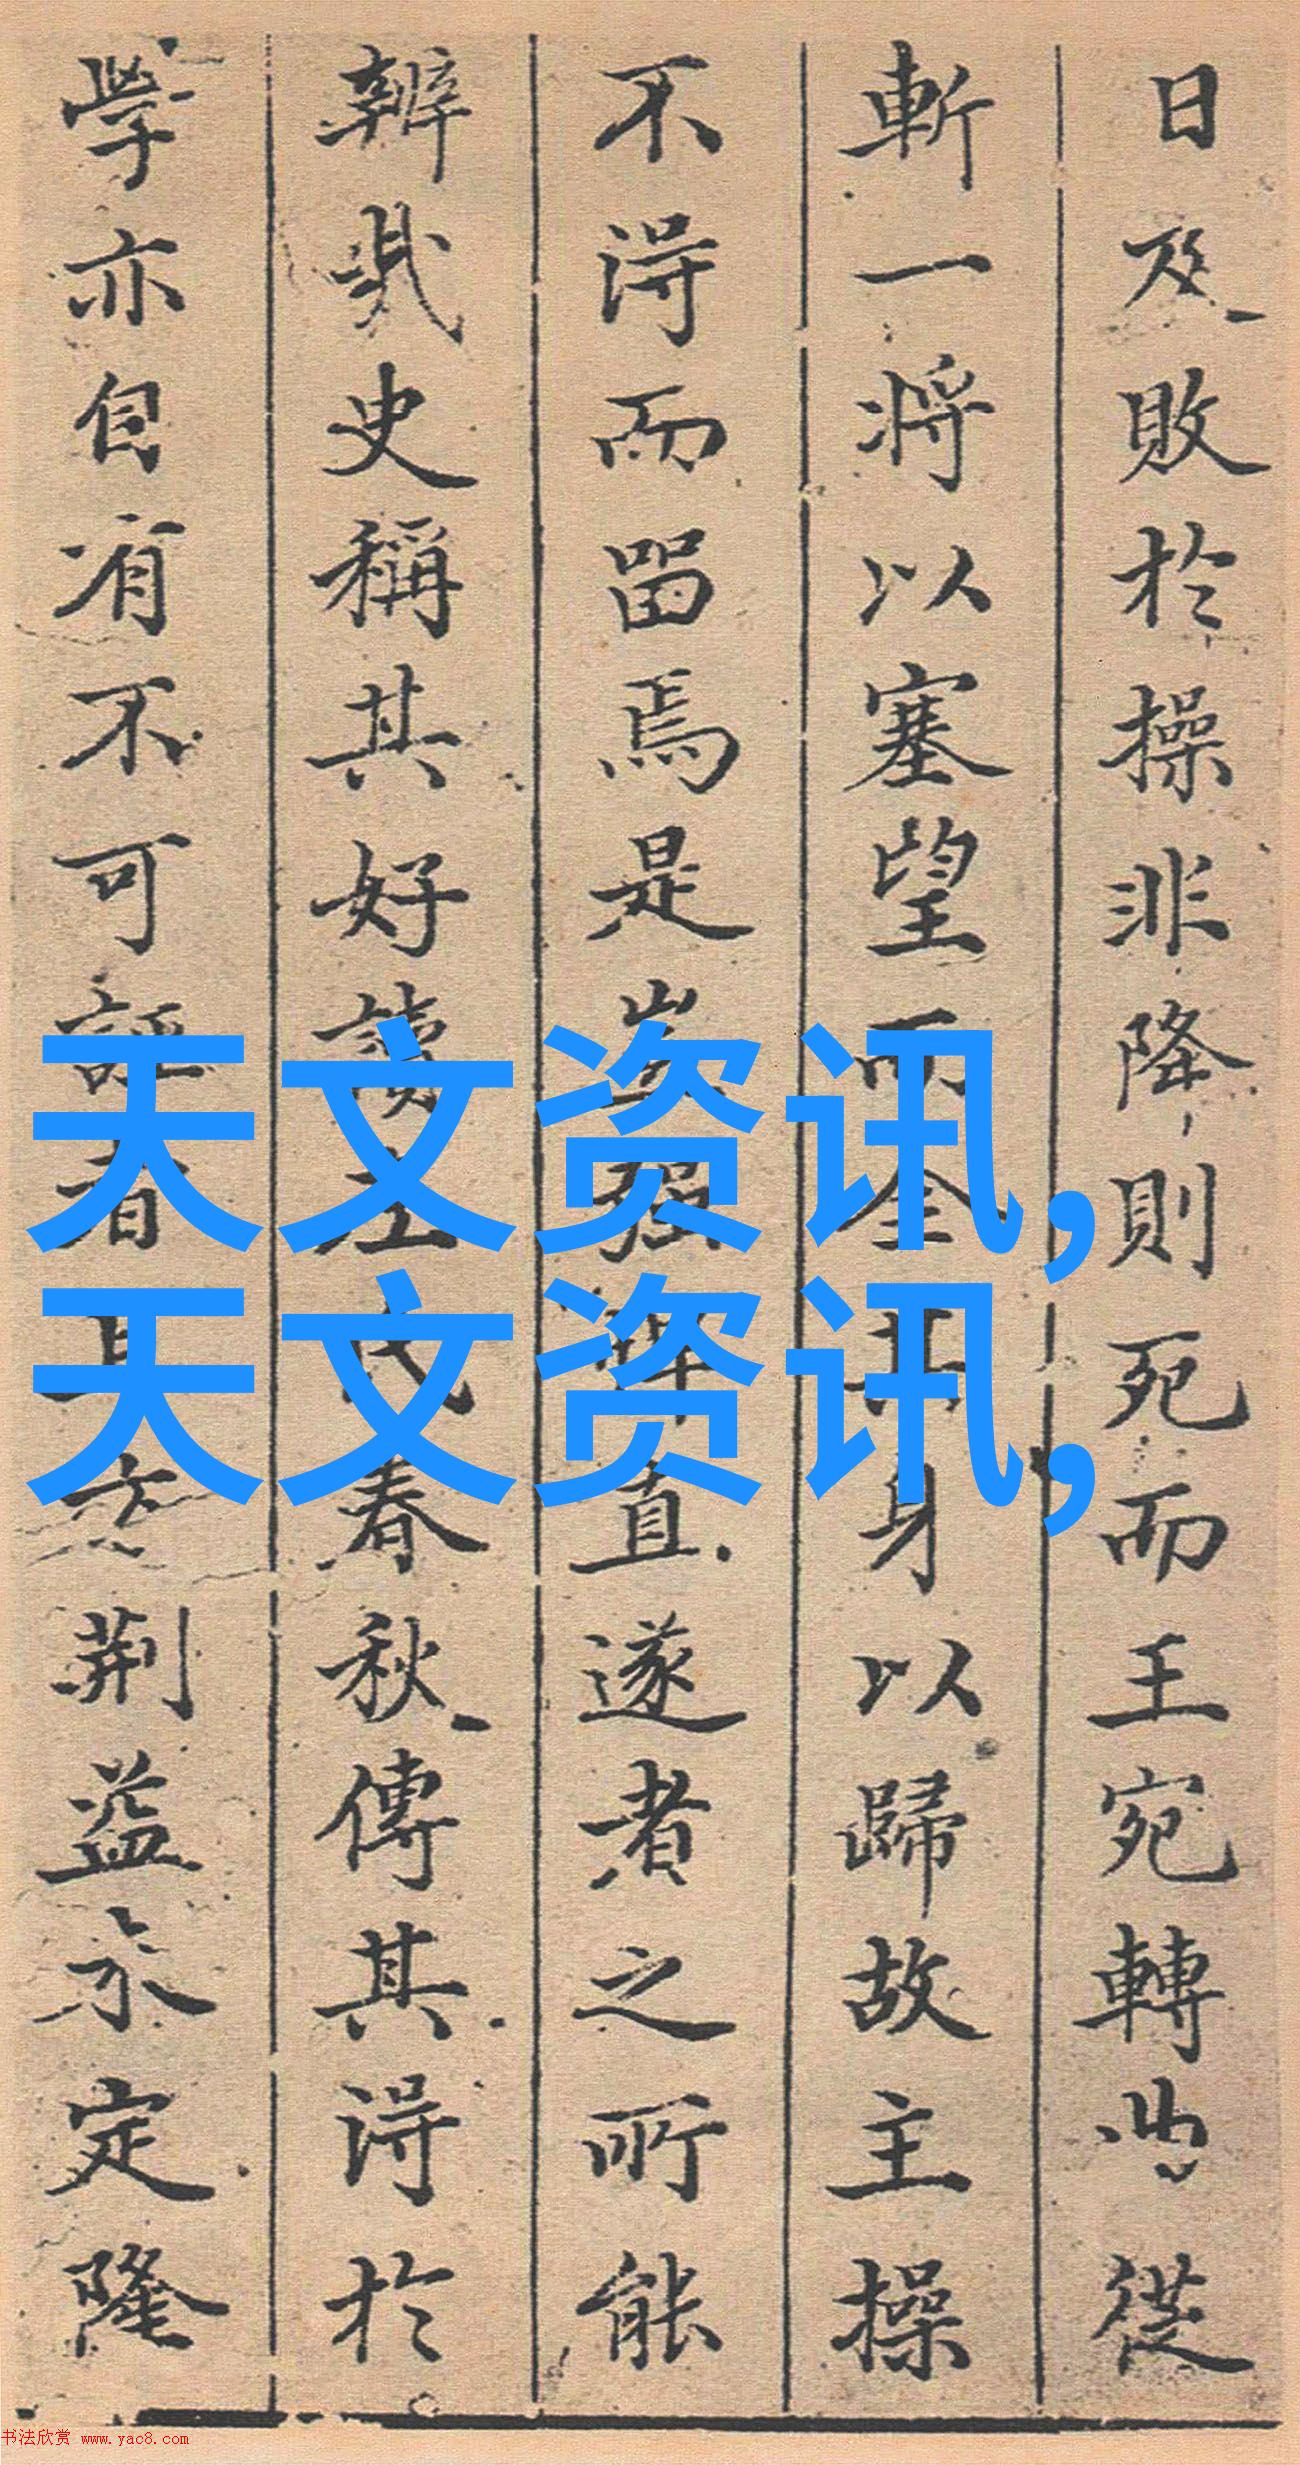 日及敗於操非降則死而王宛轉曲從
斬一将以塞望而全其身以歸故主操
不得而留焉是豈强辩直遂者之所能
辨哉史稱其好讀左氏春秋傳其得於
學亦自有不可誣者且方荆益未定隆
天文资讯,
天文资讯,
书法欣赏 www.yac8.com